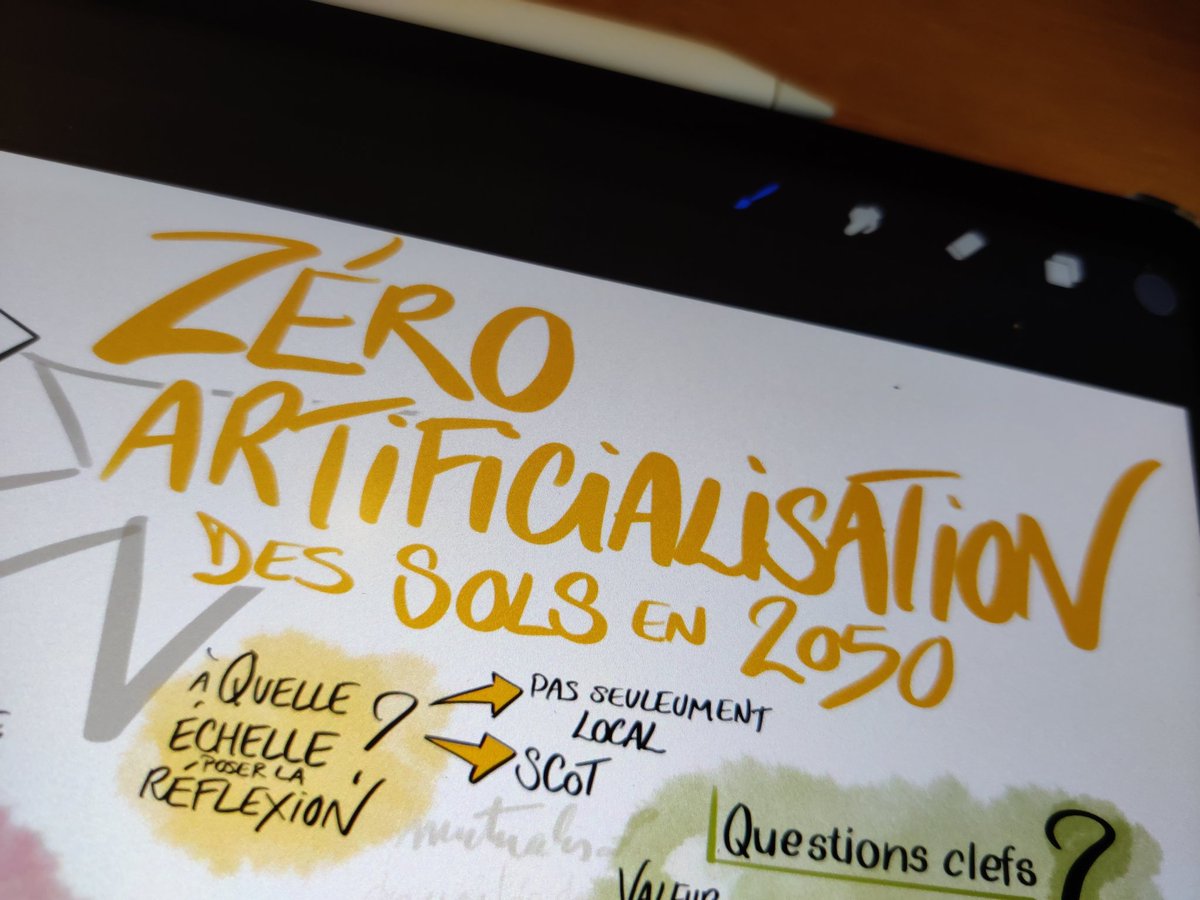 ZÉRO
ARTIFICIALISATION
DES SOLS EN 2050
À QUELLE
ÉCHELLE ?
POSER LA
RÉFLEXION
PAS SEULEUMENT
LOCAL
SCOT
Questions clefs ?
VALEUR